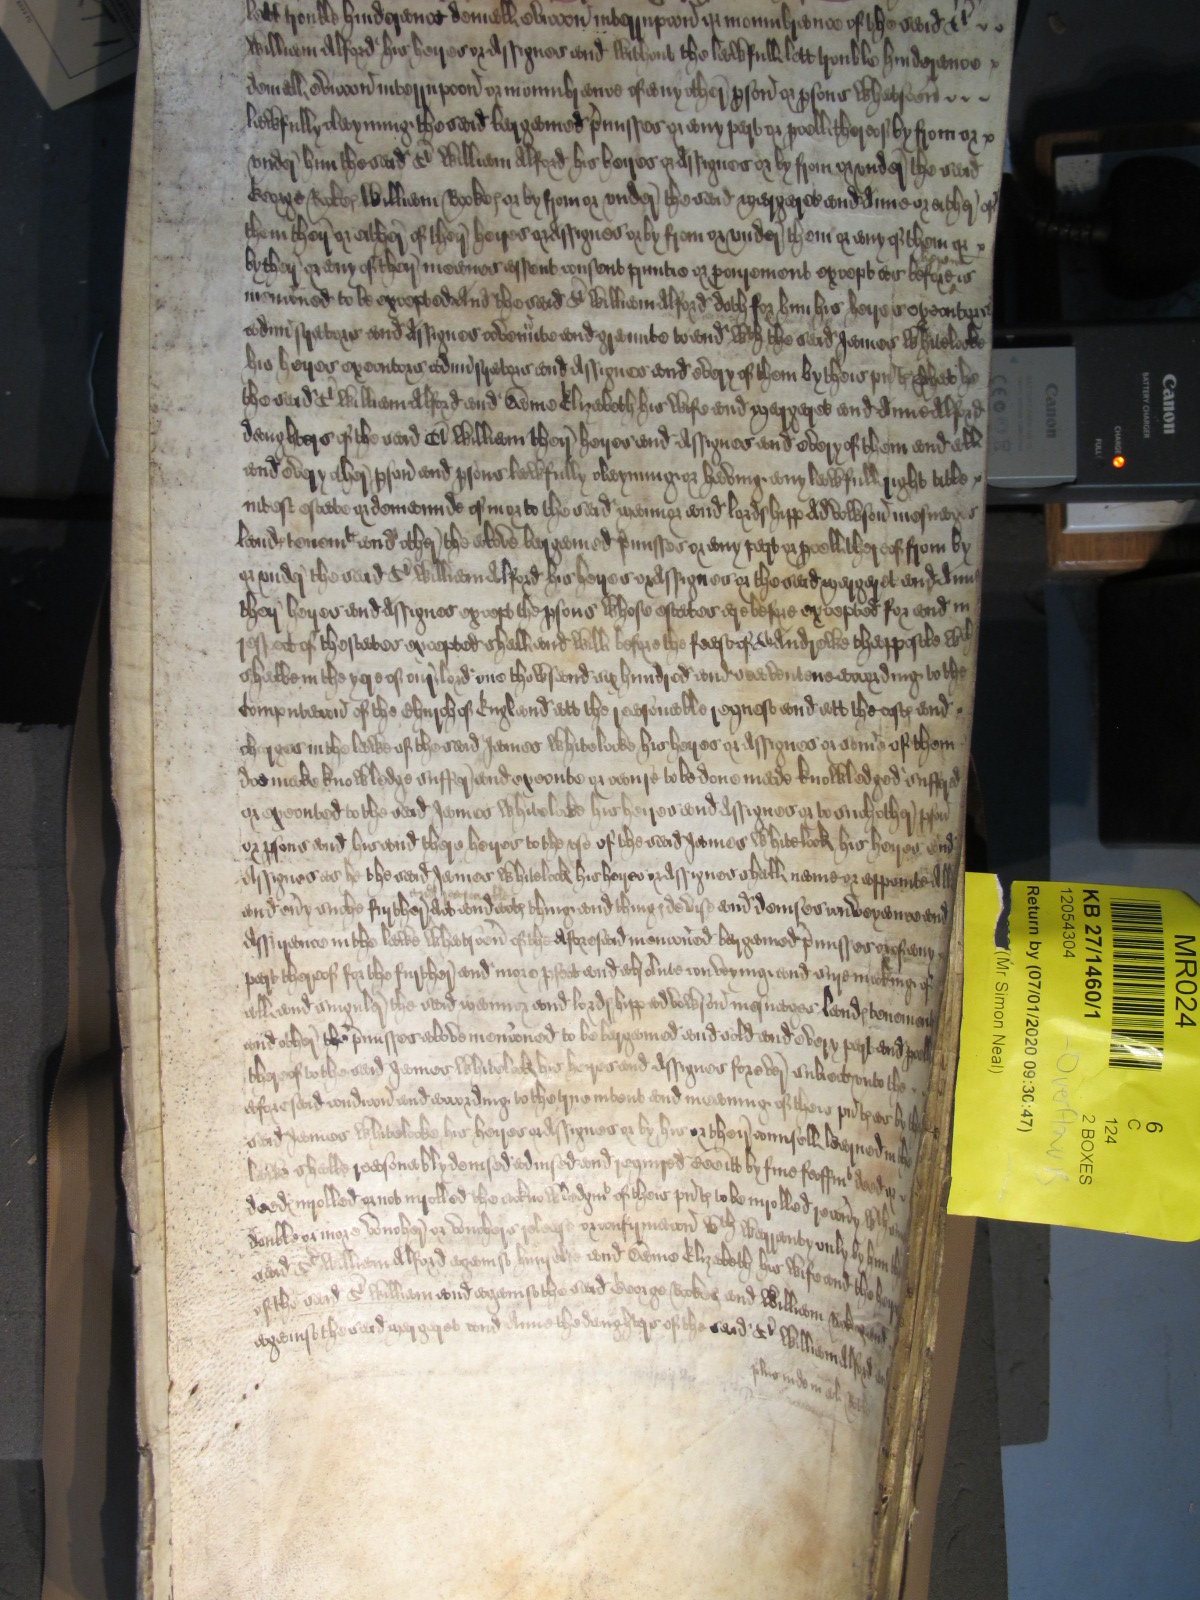 lett trouble hinderance deniall eviccon interrupcon or incumbrance of the said Sr
William Alford his heyres or Assignes and without the lawfull lett trouble hinderance
deniall eviccon interrupcon or incumbrance of any other pson or psons whatsoever
lawfully clayming the said bargained pmisses or any part or pcell thereof by from or
under him the said Sr William Alford his heyres or Assignes or by from or under the said
George Rookes William Rookes or by from or under the said Margaret and Anne or either of
them their or either of their heyres or Assignes or by from or under them or any of them or
by their or any of their meanes assent consent privitie or procurement except as before is
mencioned to be excepted And the said Sr William Alford doth for him his heyres executors
administrators and Assignes covenante and graunte to and wth the said James Whitelocke
his heyres executors administrators and Assignes and every of them by theis pnts That he
the said Sr William Alford and Dame Elizabeth his wife and Margaret and Anne Alford
daughters of the said Sr William their heyres and Assignes and every of them and all
and every other pson and psons lawfully clayming or having any lawfull right title
interest estate or demaunde of in or to the said mannor and lordshipp Advowson mesuages
lands tenemts and other the above bargained pmisses or any part or pcell thereof from by
or under the said Sr William Alford his heyres or Assignes or the said Margaret and Anne
their heyres and Assignes except the psons whose estates are before excepted for and in
respect of thestates excepted shall and will before the feast of St Andrewe thappostle wch
shalbe in the yere of our lord one thowsand six hundred and seaventene according to the
Computacion of the Church of England att the reasonable request and att the costs and
charges in the lawe of the said James Whitelocke his heyres or Assignes or some of them
doe make knowledge suffer and execute or cause to be done made knowledged suffred
or executed to the said James Whitelocke his heyres and Assignes or to such other pson
or psons and his and their heyres to the use of the said James Whitelock his heyres and
Assignes as he the said James Whitelock his heyres or Assignes shall name or appointe All
and every such further act and acts thing and things devise and devises conveyance and
Assurance in the lawe whatsoever of the aforesaid mencioned bargained pmisses or of any
part thereof for the further and more pfect and absolute conveying and sure making of
all and singuler the said mannor and lordshipp advowson mesuages lands tenements
and other the pmisses above mencioned to be bargained and sold and every part and pcell
thereof to the said James Whitelock his heyres and Assignes forever subiect unto the
aforesaid condicion and according to the true intent and meaning of theis pnts as by the
said James Whitelocke his heyres or Assignes or by his or their counsell learned in the
lawe shalbe reasonably devised advised and required be it by fine feoffmt deed or
deeds inrolled or not inrolled the acknowledgmt of theis pnts to be inrolled recovery wth
double or more voucher or vouchers release or confirmacion wth warranty only by him the
said Sr William Alford against him selfe and Dame Elizabeth his wife and the heyres
of the said Sr William and against the said George Rookes and William Rookes and
against the said Margaret and Anne the daughters of the said Sr William Alford
plus inde in
Canon
Canon
BATTERY CHARGER
CHARGE
FULL
MR024
6
C
124
2 BOXES
KB 27/1460/1
12054304
Return by (07/01/2020 09:30:47)
(Mr Simon Neal)